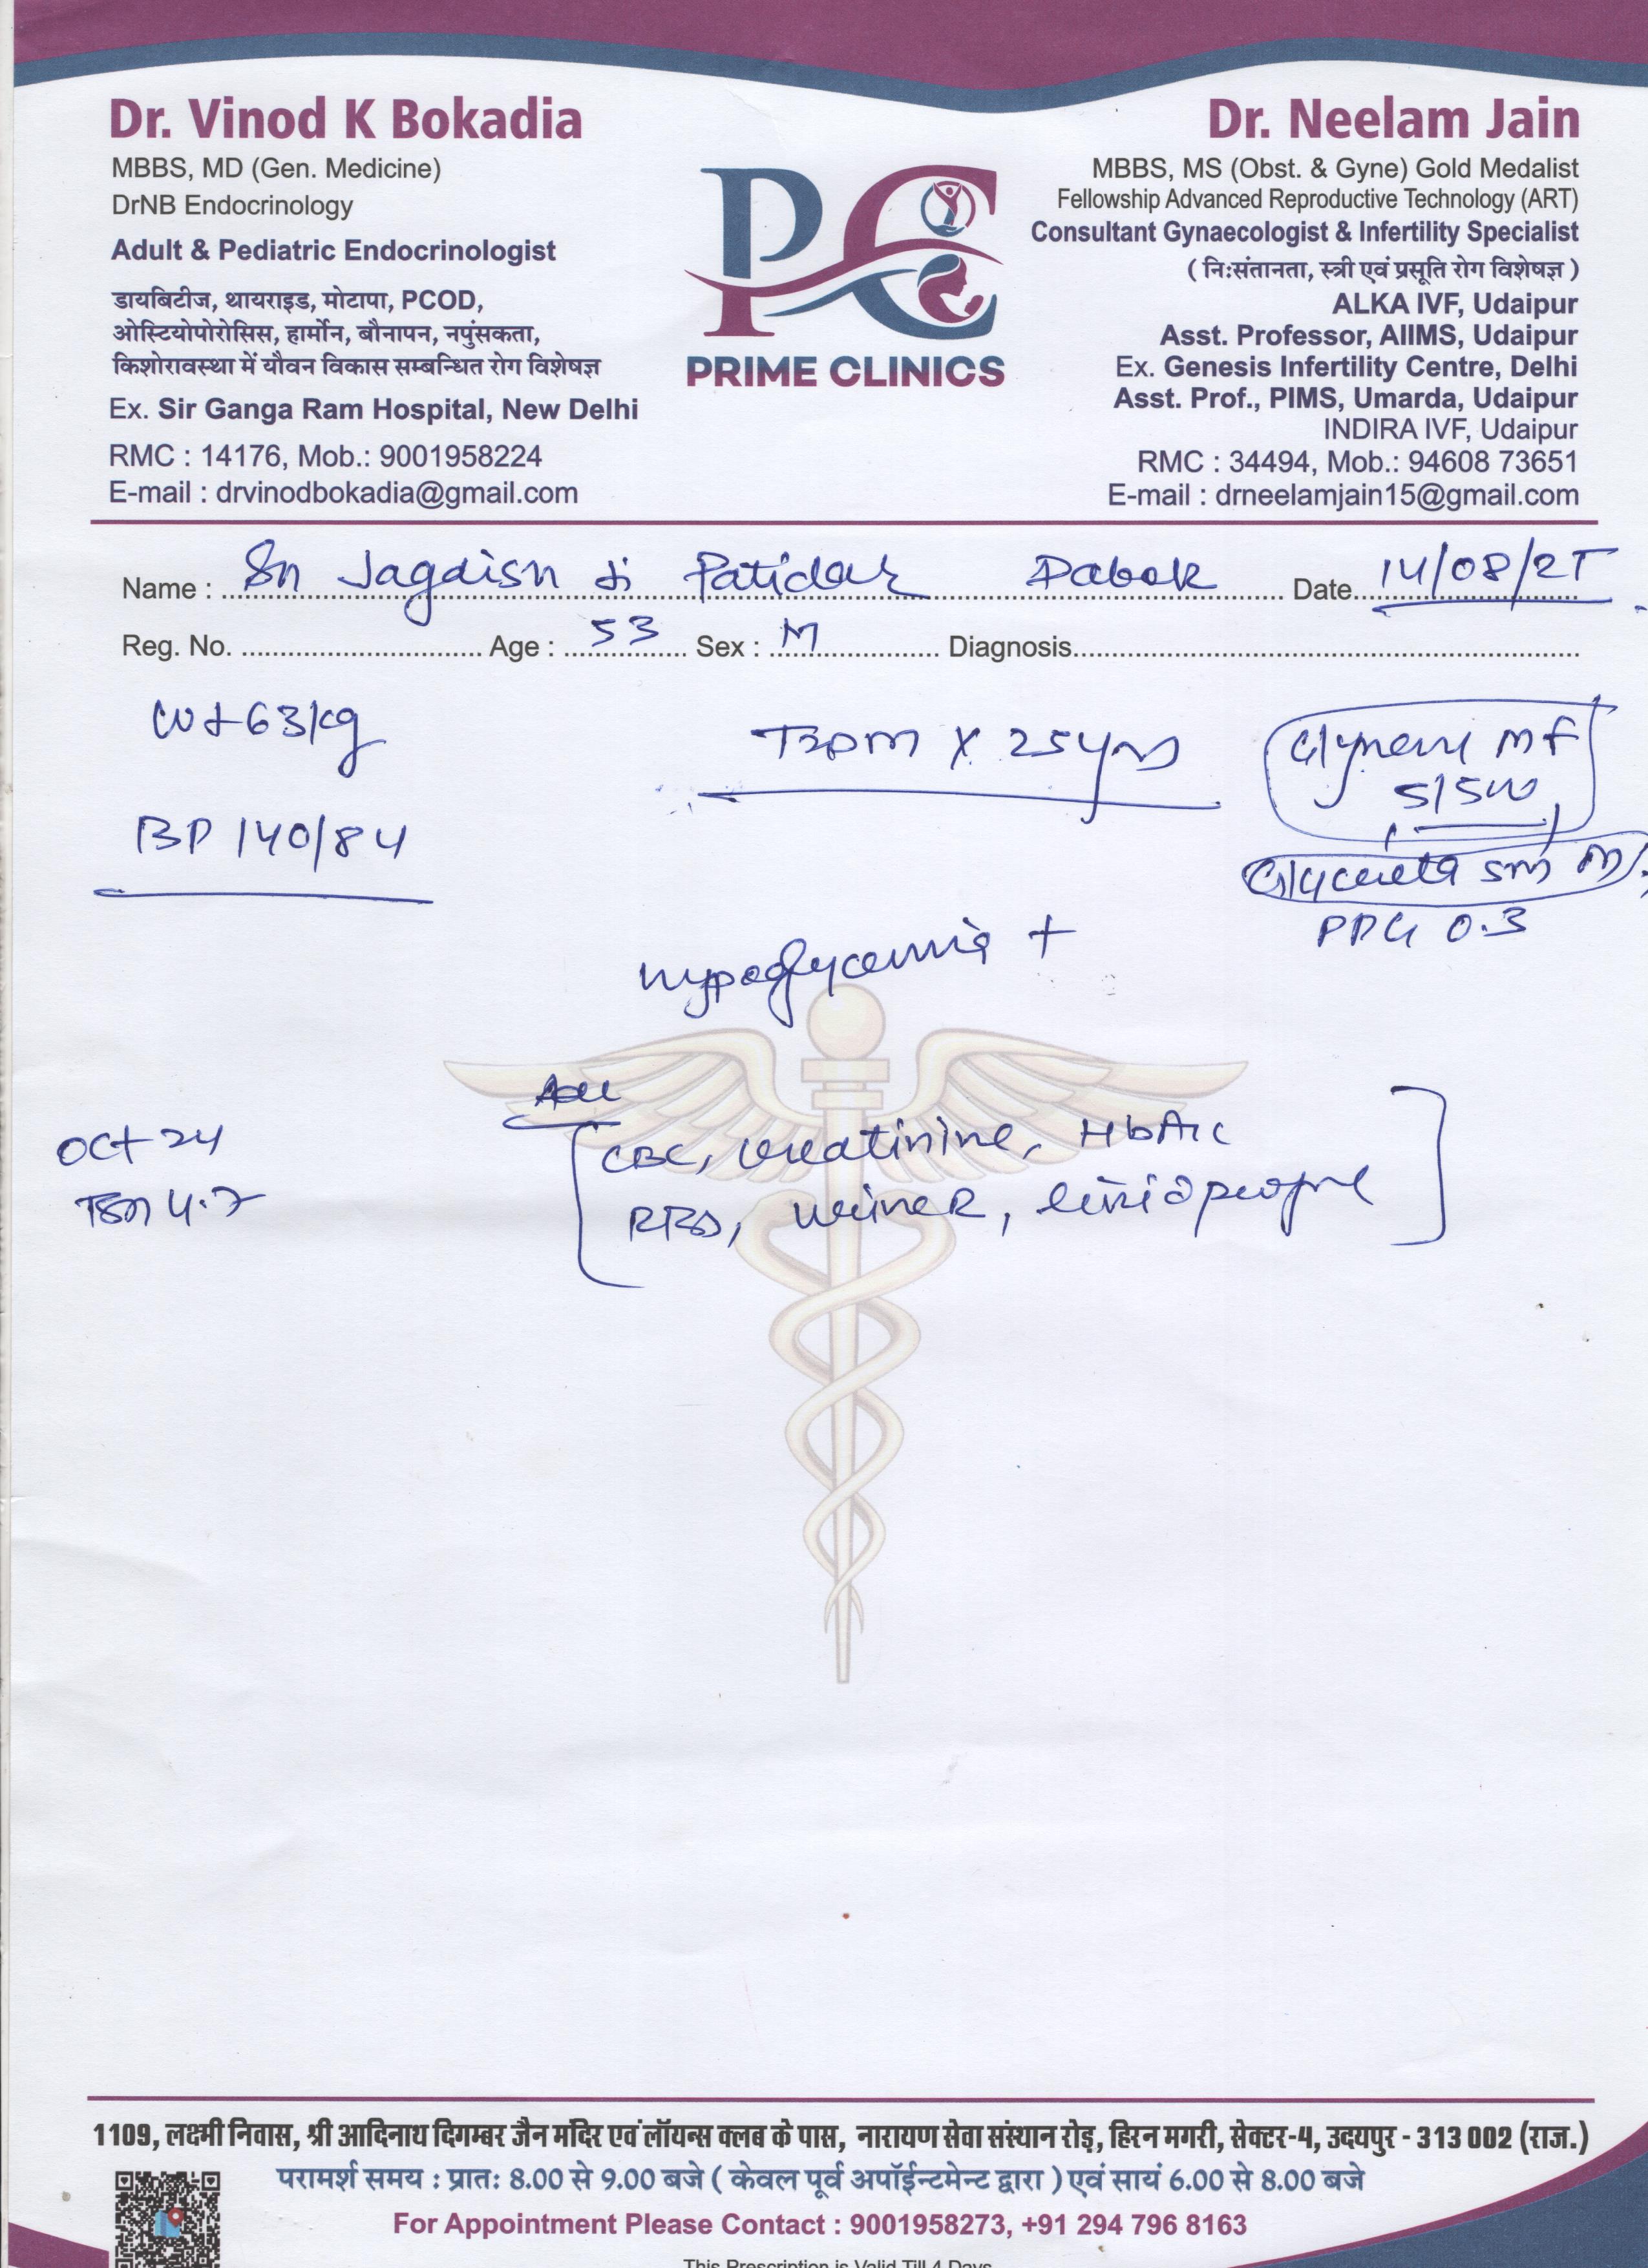 Dr. Vinod K Bokadia
MBBS, MD (Gen. Medicine)
DrNB Endocrinology
Adult & Pediatric Endocrinologist
डायबिटीज, थायराइड, मोटापा, PCOD,
ओस्टियोपोरोसिस, हार्मोन, बौनापन, नपुंसकता,
किशोरावस्था में यौवन विकास सम्बन्धित रोग विशेषज्ञ
Ex. Sir Ganga Ram Hospital, New Delhi
RMC : 14176, Mob.: 9001958224
E-mail : drvinodbokadia@gmail.com
PC
PRIME CLINICS
Dr. Neelam Jain
MBBS, MS (Obst. & Gyne) Gold Medalist
Fellowship Advanced Reproductive Technology (ART)
Consultant Gynaecologist & Infertility Specialist
( निःसंतानता, स्त्री एवं प्रसूति रोग विशेषज्ञ )
ALKA IVF, Udaipur
Asst. Professor, AIIMS, Udaipur
Ex. Genesis Infertility Centre, Delhi
Asst. Prof., PIMS, Umarda, Udaipur
INDIRA IVF, Udaipur
RMC : 34494, Mob.: 94608 73651
E-mail : drneelamjain15@gmail.com
Name : Jagdish Ji Patidar Dabok Date 14/08/25
Reg. No. Age : 53 Sex : M Diagnosis
Wt 63kg
T2DM X 25yrs
MF
5/500
BP 140/84
PPG 0.3
hypoglycemia +
Adv
Oct 24
CBC, creatinine, HbA1c
TSH 4.7
RBS, urine R, lipid profile
1109, लक्ष्मी निवास, श्री आदिनाथ दिगम्बर जैन मंदिर एवं लॉयन्स क्लब के पास, नारायण सेवा संस्थान रोड़, हिरन मगरी, सेक्टर-4, उदयपुर - 313 002 (राज.)
परामर्श समय : प्रातः 8.00 से 9.00 बजे ( केवल पूर्व अपॉईन्टमेन्ट द्वारा ) एवं सायं 6.00 से 8.00 बजे
For Appointment Please Contact : 9001958273, +91 294 796 8163
This Prescription is Valid Till 4 Days